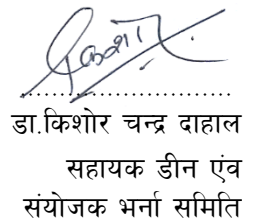 डा.किशोर चन्द्र दाहाल
सहायक डीन एंव
संयोजक भर्ना समिति